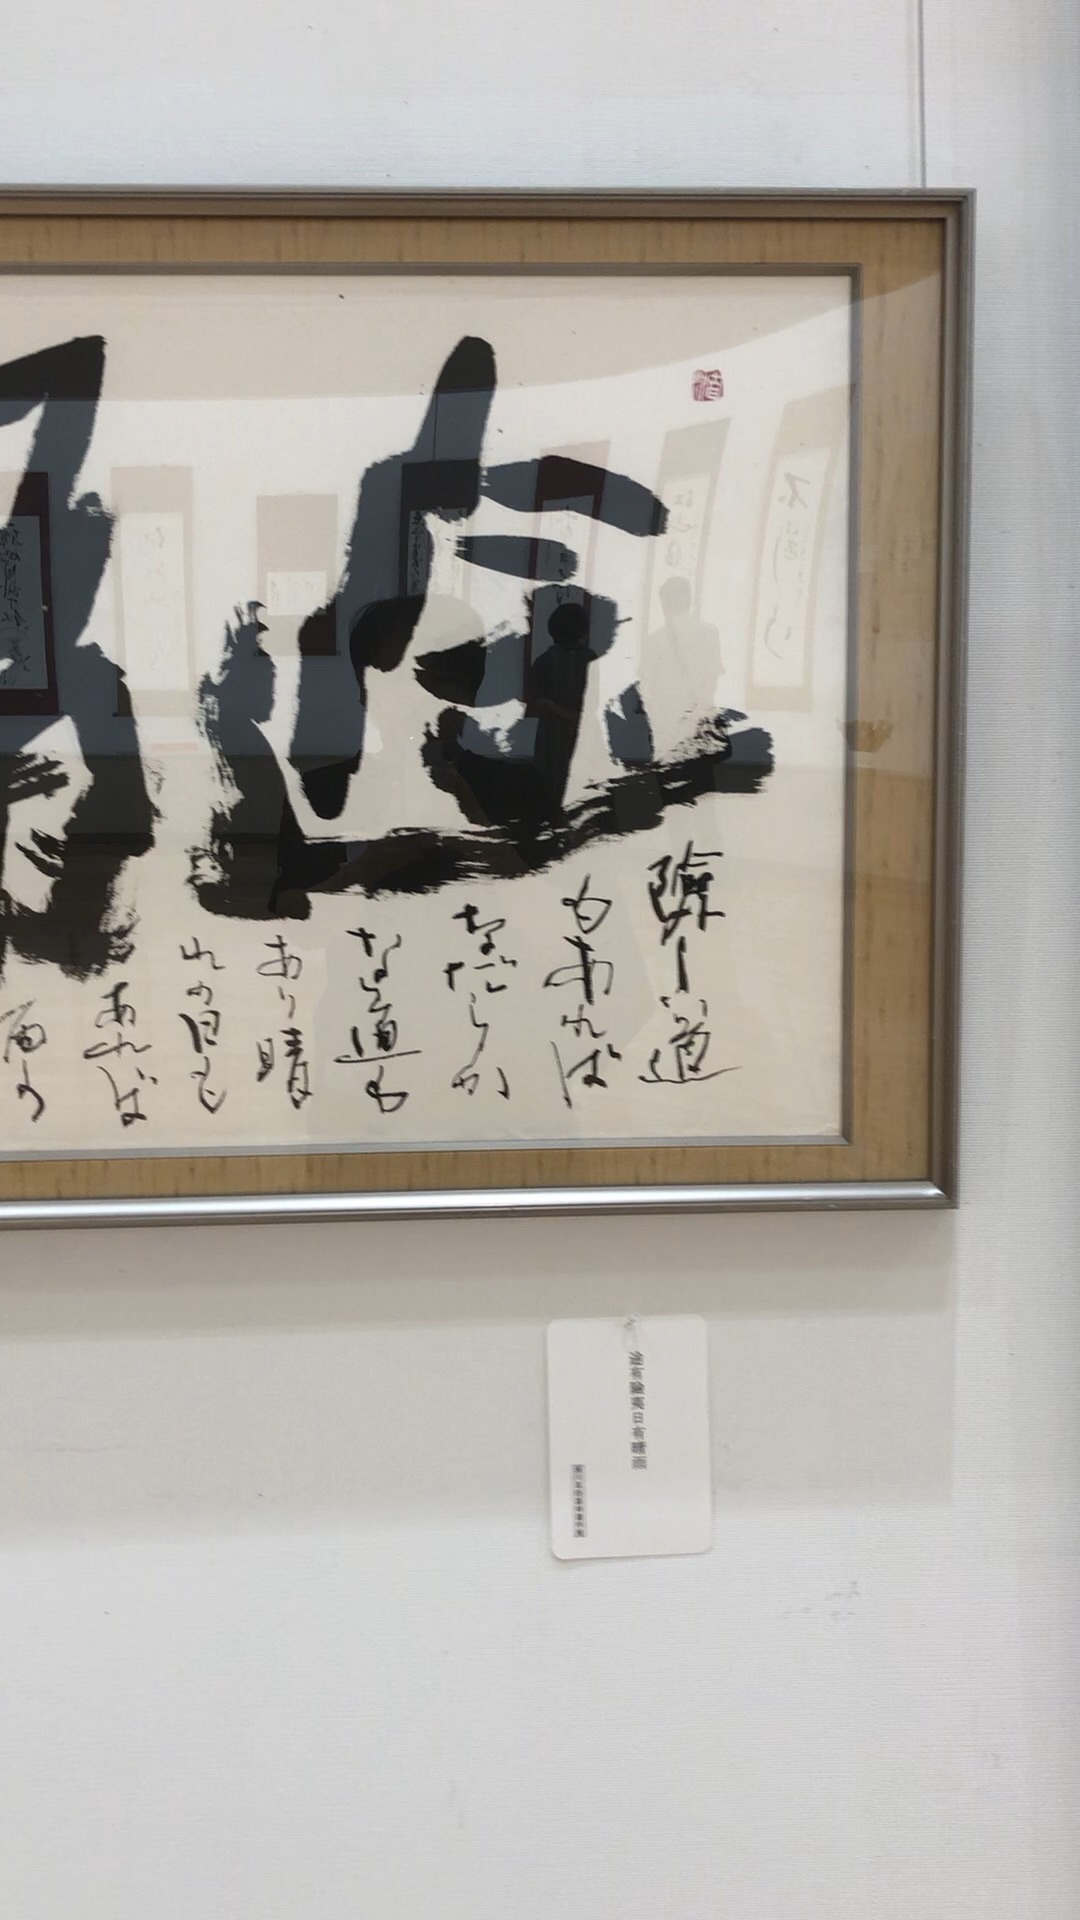 途有
険しい道
もあれば
なだらか
な道も
あり晴
れの日も
あれば
雨の
途有險夷日有晴雨